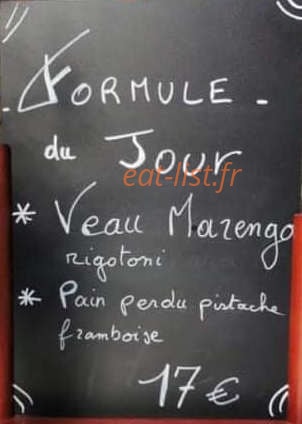 - FORMULE -
du JOUR
eat-list.fr
* Veau Mazengo
rigotoni
* Pain perdu pistache
framboise
17 €